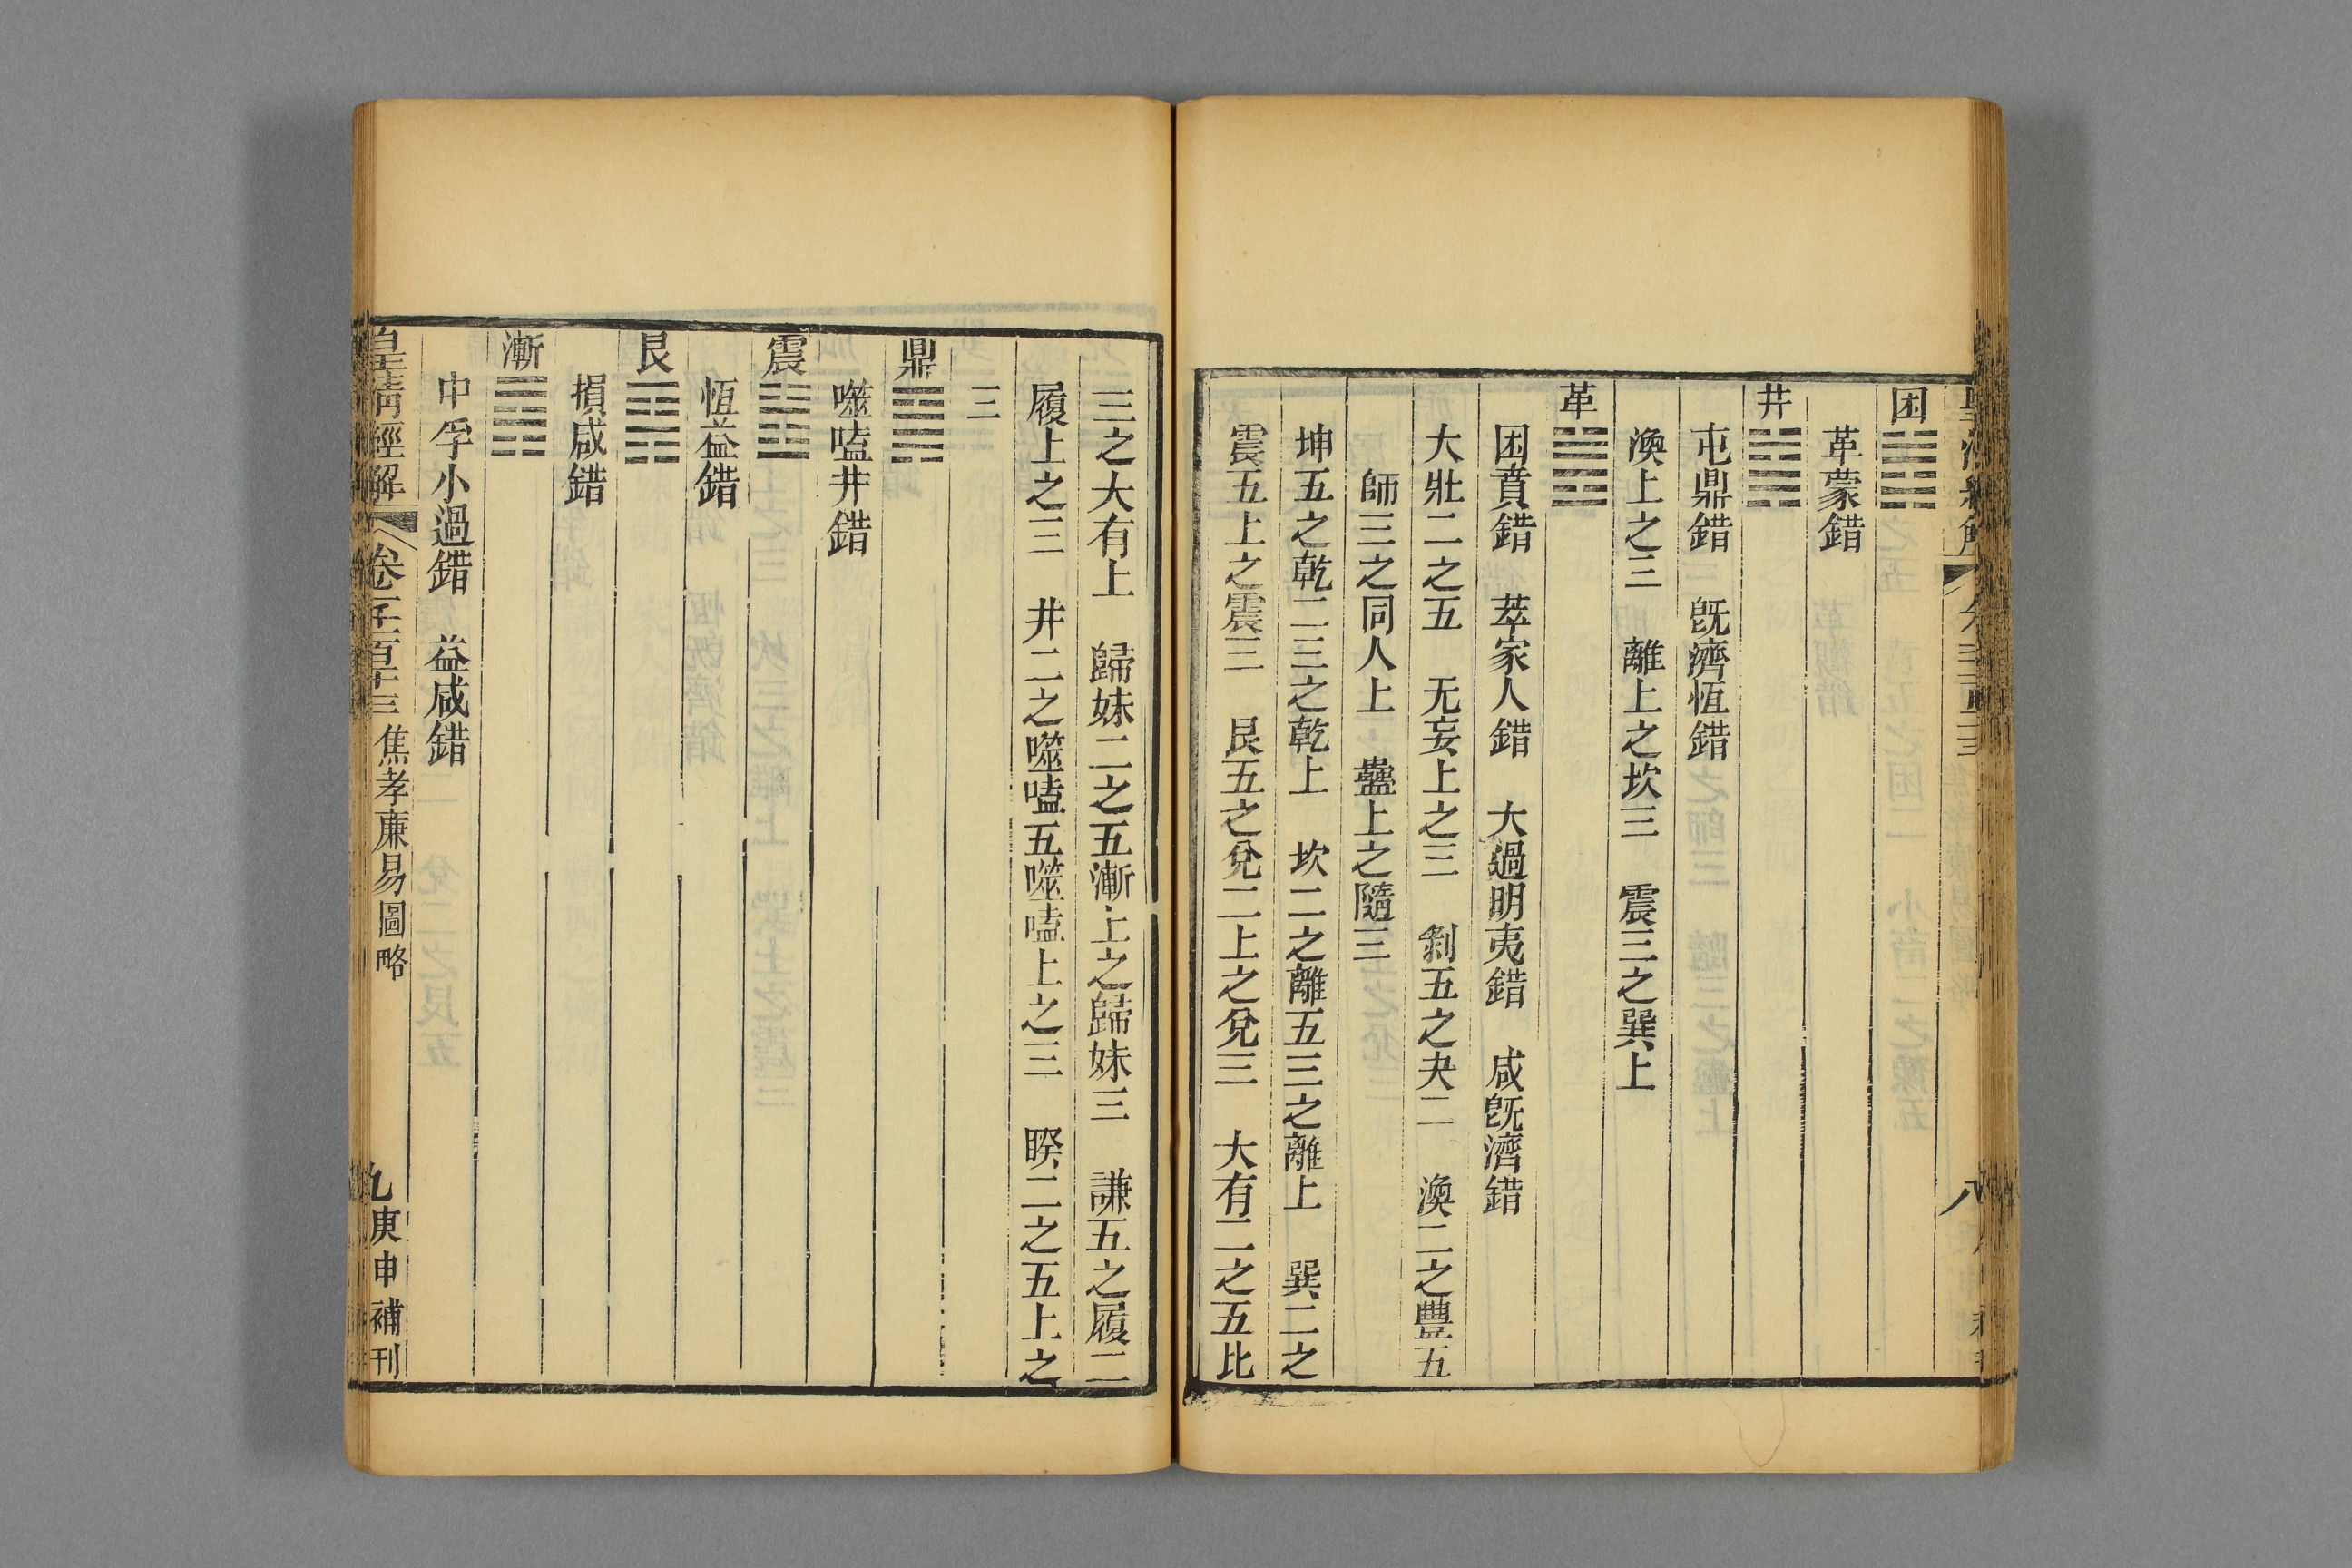 困䷮
革蒙錯
井䷯
屯鼎錯　旣濟恆錯
渙上之三　離上之坎三　震三之巽上
革䷰
困賁錯　萃家人錯　大過明夷錯　咸旣濟錯
大壯二之五　无妄上之三　剝五之夬二　渙二之豐五
師三之同人上　蠱上之隨三
坤五之乾二三之乾上　坎二之離五三之離上　巽二之
震五上之震三　艮五之兌二上之兌三　大有二之五比
三之大有上　歸妹二之五漸上之歸妹三　謙五之履二
履上之三　井二之噬嗑五噬嗑上之三　睽二之五上之
三
鼎䷱
噬嗑井錯
震䷲
恆益錯
艮䷳
損咸錯
漸䷴
中孚小過錯　益咸錯
皇清經解　卷一千一百十三　焦孝廉易圖略　九　庚申補刊